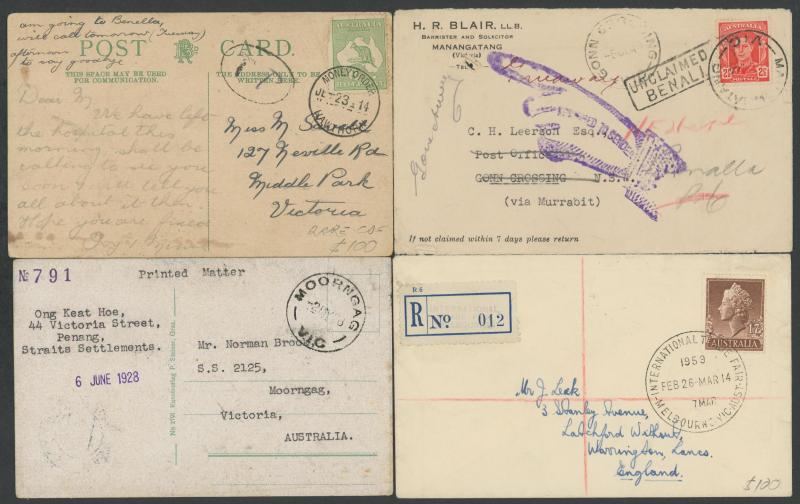 am going to Benella,
will call tomorrow
afternoon
to say goodbye
POST CARD.
THIS SPACE MAY BE USED
FOR COMMUNICATION.
THE ADDRESS ONLY TO BE
WRITTEN HERE.
Dear M
We have left
the hospital this
morning, shall be
calling to see you
soon & will tell you
all about it then.
Hope you are
AUSTRALIA
MONEY ORDER
23 14
HAWTHORN
Miss M
127 Neville Rd
Middle Park
Victoria
RARE CDS
£100
H. R. BLAIR, LL.B.
BARRISTER AND SOLICITOR
MANANGATANG
(Victoria)
AUSTRALIA
2½D
POSTAGE
UNCLAIMED
BENALLA
C. H. Leerson Esq.
Post Office
GONN CROSSING N.S.
(via Murrabit)
Benalla
If not claimed within 7 days please return
No 791
Printed Matter
Ong Keat Hoe,
44 Victoria Street,
Penang,
Straits Settlements.
6 JUNE 1928
MOORNGAG
VIC
Mr. Norman Broo
S.S. 2125,
Moorngag,
Victoria,
AUSTRALIA.
R 6
R No. 012
1/7
AUSTRALIA
INTERNATIONAL TRADE FAIR
1959
FEB 26-MAR 14
7 MAR
MELBOURNE-VIC-AUST
Mr J. Leak
3 Stanley Avenue,
Latchford Without,
Warrington, Lancs.
England.
£100